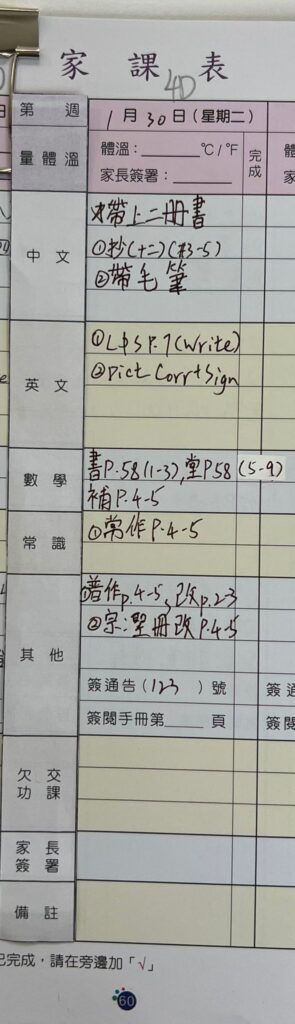 家課表
4D
第 週
1月30日(星期二)
量體溫
體溫:______℃/℉
家長簽署:______
完成
中文
*帶上二冊書
①抄(十二)(杉-5)
②帶毛筆
英文
①L&S P.7(Write)
②Dict Corr+Sign
數學
書P.58(1-3),堂P.58(5-9)
補P.4-5
常識
①常作P.4-5
其他
①普作p.4-5、改p.2-3
②宗:堅冊改P.4-5
簽通告(123)號
簽閱手冊第____頁
欠交
功課
家長
簽署
備註
已完成,請在旁邊加「√」
60